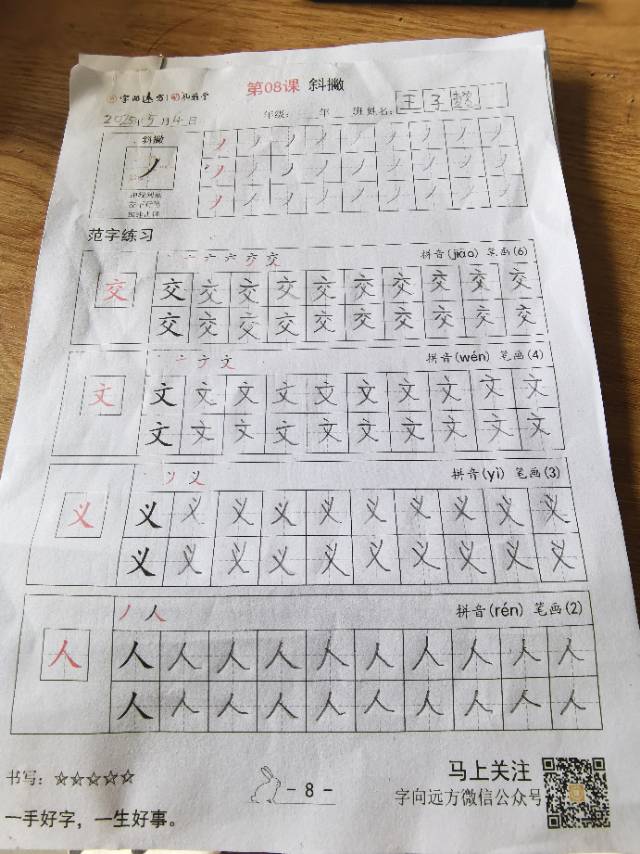 字向远方
第08课 斜撇
2025年5月4日 年级: 年 班 姓名: 王子
斜撇
范字练习
拼音(jiāo) 笔画(6)
交 交 交 交 交 交 交 交 交 交 交
交 交 交 交 交 交 交 交 交 交
文 拼音(wén) 笔画(4)
文 文 文 文 文 文 文 文 文 文 文
文 文 文 文 文 文 文 文 文 文
义 拼音(yì) 笔画(3)
义 义 义 义 义 义 义 义 义 义 义
义 义 义 义 义 义 义 义 义 义
人 拼音(rén) 笔画(2)
人 人 人 人 人 人 人 人 人 人 人
人 人 人 人 人 人 人 人 人 人
书写: ☆☆☆☆☆
- 8 -
马上关注
字向远方微信公众号
一手好字，一生好事。